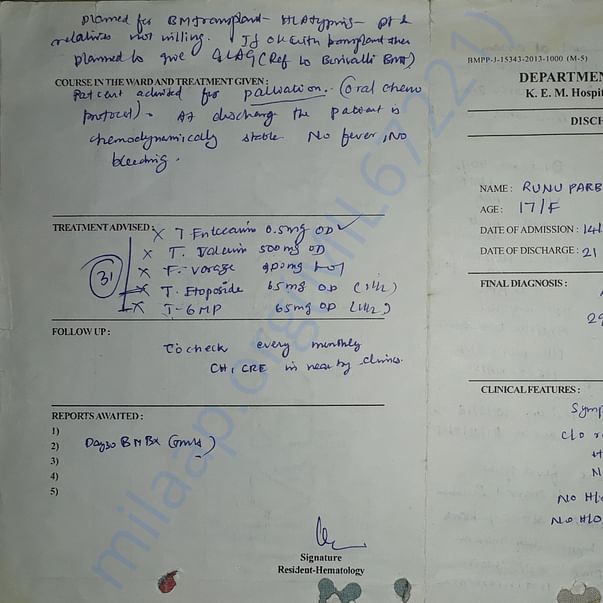 planned for BM transplant - HLA typing - pt &
relatives not willing. If ok with transplant then
planned to give GLAG (Ref to Borivalli BMT)
COURSE IN THE WARD AND TREATMENT GIVEN :
Patient advised for palliation. (Oral chemo
protocol). At discharge the patient is
hemodynamically stable No fever, No
bleeding.
TREATMENT ADVISED :
X T. Entecavir 0.5mg OD
X T. 500mg OD
X T. 200mg
X T. Etoposide 65mg OD
X T. 6MP 65mg OD
31
FOLLOW UP :
To check every monthly
CH, CRE in near by clinics.
REPORTS AWAITED :
1)
2) Day 30 BMBx
3)
4)
5)
Signature
Resident-Hematology
BMPP-J-15343-2013-1000 (M-5)
DEPARTMEN
K. E. M. Hospit
DISCH
NAME : RUNU PARB
AGE : 17/F
DATE OF ADMISSION : 14
DATE OF DISCHARGE : 21
FINAL DIAGNOSIS :
29
CLINICAL FEATURES :
Symp
C/o
No H/o
No H/o